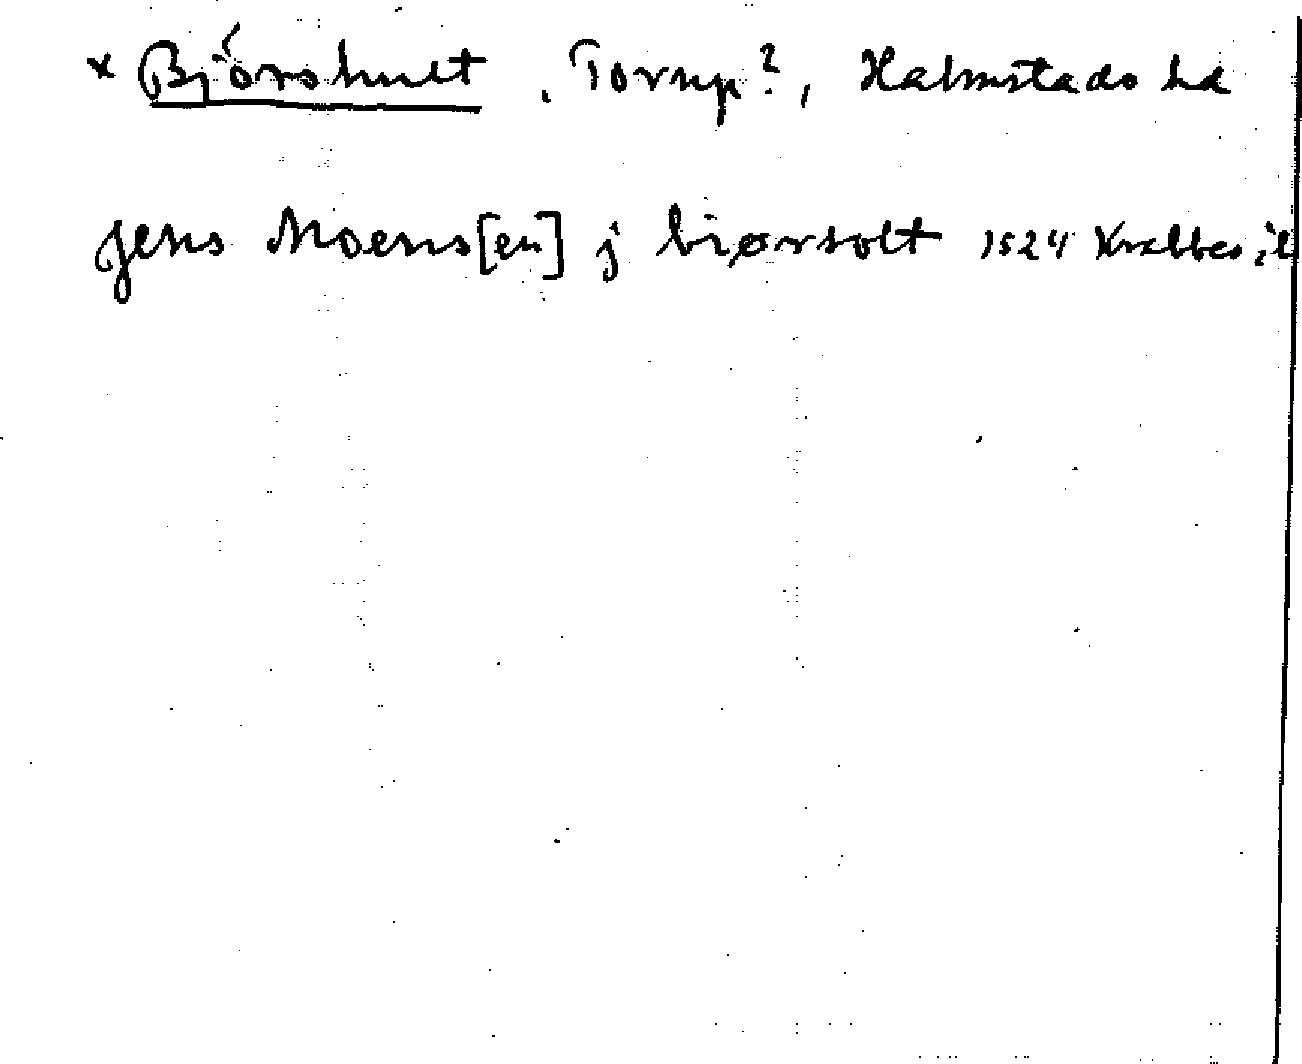 × Björshult . Torup?, Halmstads hd
Jens Moens[en] j biørsolt 1524 Kvalbes,il